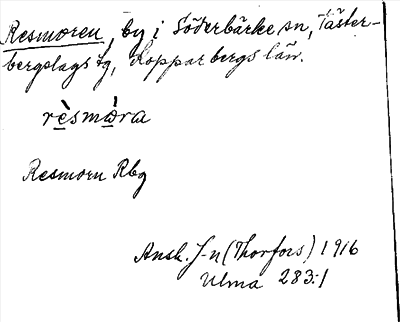 Resmoren, by i Söderbärke sn, Väster-
bergslags tg, Kopparbergs län.
rèsmǿra
Resmorn Rbg
Ansk. J-n (Thorfors) 1916
Ulma 283:1